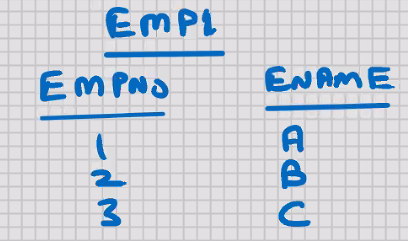 EMP1
EMPNO ENAME
1 A
2 B
3 C